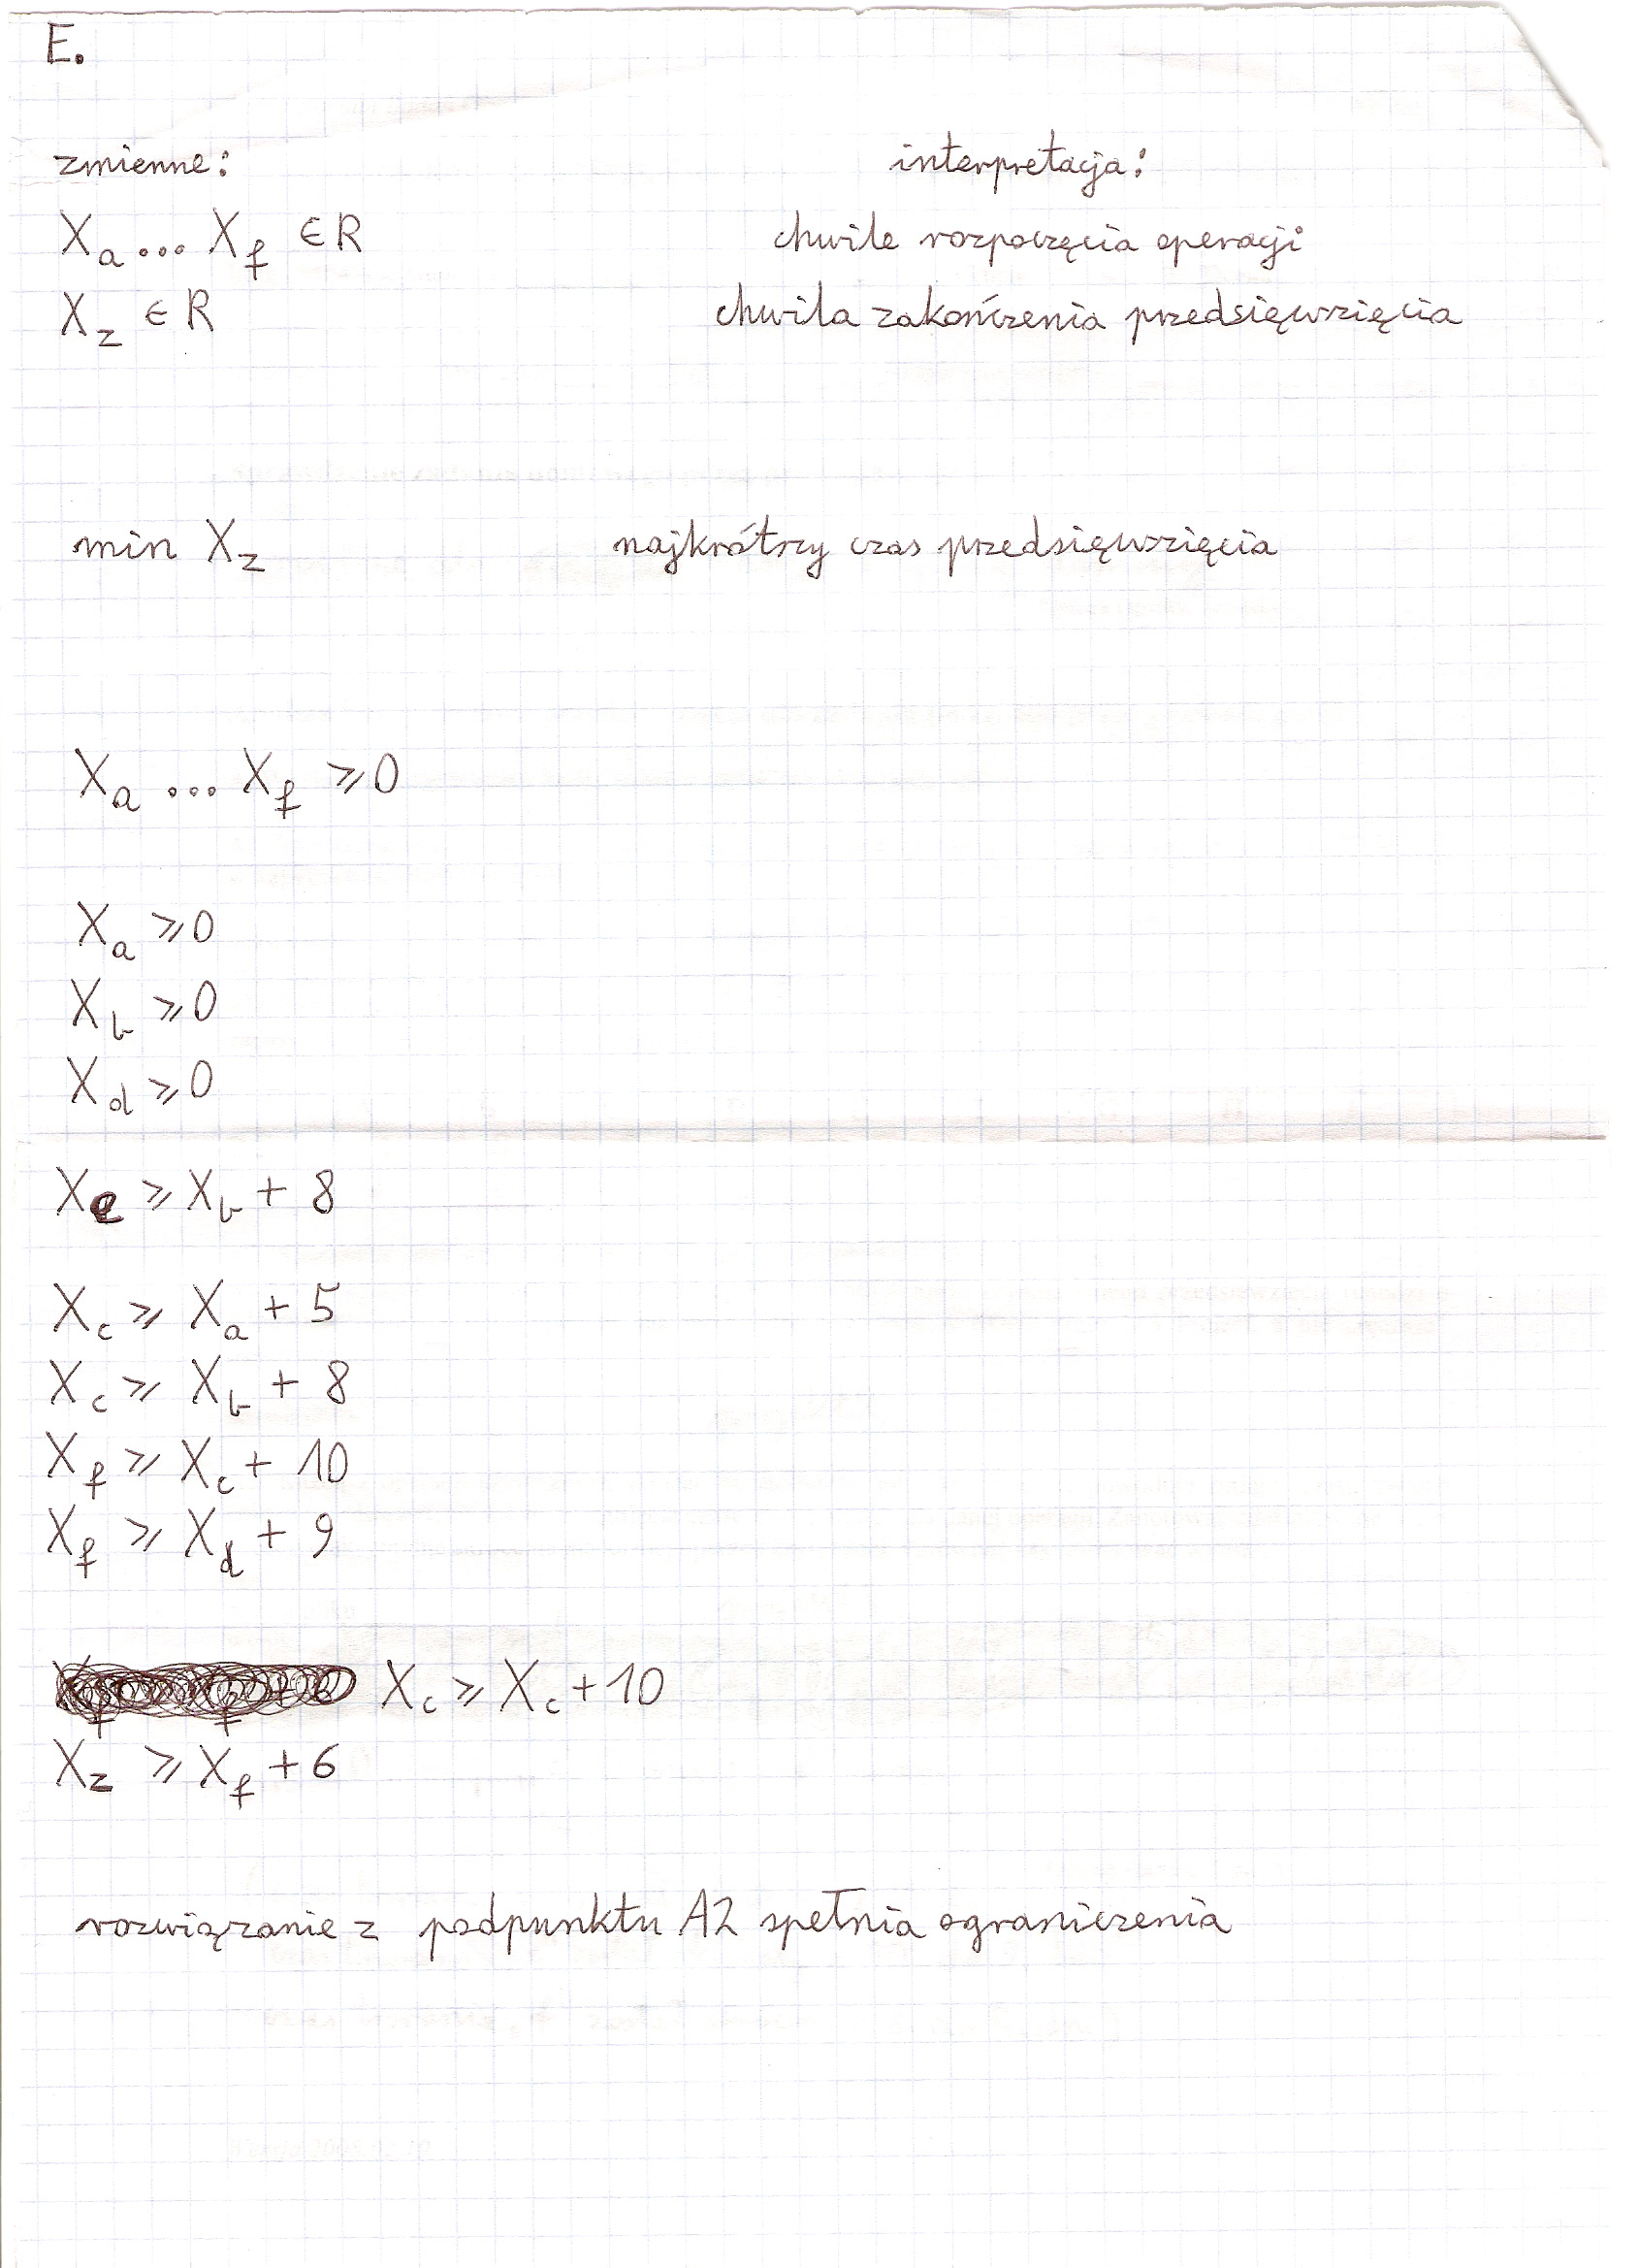 E.
zmienne: interpretacja:
Xa ... Xf ∈ R chwile rozpoczęcia operacji
Xz ∈ R chwila zakończenia przedsięwzięcia
min Xz najkrótszy czas przedsięwzięcia
Xa ... Xf ⩾ 0
Xa ⩾ 0
Xb ⩾ 0
Xd ⩾ 0
Xe ⩾ Xb + 8
Xc ⩾ Xa + 5
Xc ⩾ Xb + 8
Xf ⩾ Xc + 10
Xf ⩾ Xd + 9
Xc ⩾ Xc + 10
Xz ⩾ Xf + 6
rozwiązanie z podpunktu A2 spełnia ograniczenia